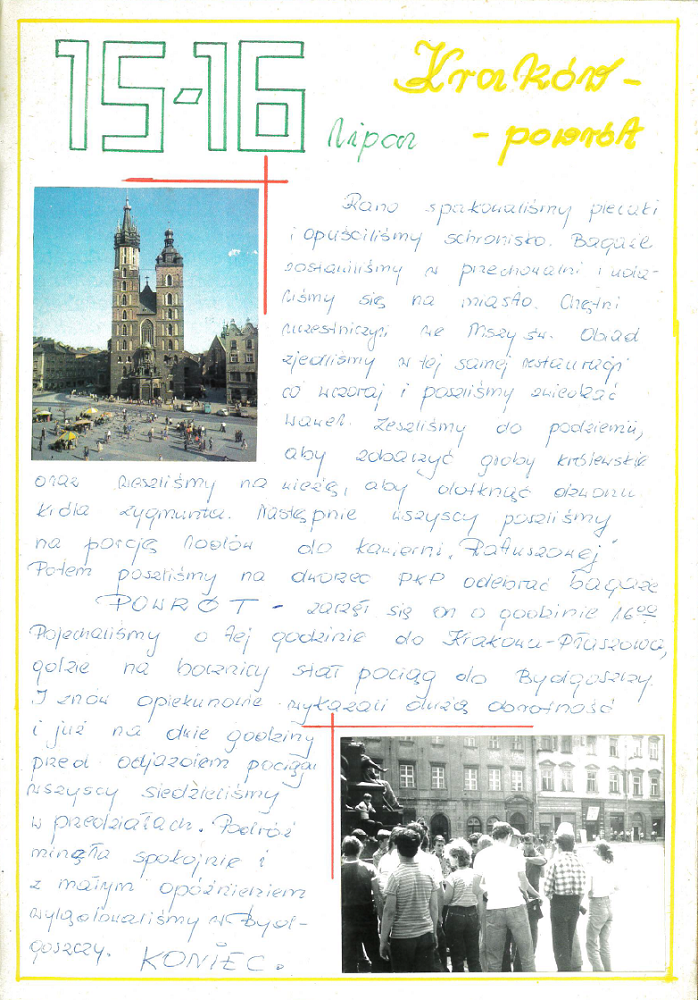 15-16 lipca
Kraków -
- powrót
Rano spakowaliśmy plecaki
i opuściliśmy schronisko. Bagaże
zostawiliśmy w przechowalni i uda-
liśmy się na miasto. Chętni
uczestniczyli we Mszy św. Obiad
zjedliśmy w tej samej restauracji
co wczoraj i poszliśmy zwiedzać
Wawel. Zeszliśmy do podziemii,
aby zobaczyć groby królewskie
oraz weszliśmy na wieżę, aby dotknąć dzwonu
króla Zygmunta. Następnie wszyscy poszliśmy
na porcję lodów do kawiarni „Ratuszowej"
Potem poszliśmy na dworzec PKP odebrać bagaże
POWRÓT - zaczął się on o godzinie 16⁰⁰
Pojechaliśmy o tej godzinie do Krakowa-Płaszowa,
gdzie na bocznicy stał pociąg do Bydgoszczy.
I znów opiekunowie wykazali dużą obrotność
i już na dwie godziny
przed odjazdem pociągu
wszyscy siedzieliśmy
w przedziałach. Podróż
minęła spokojnie i
z małym opóźnieniem
wylądowaliśmy w Byd
goszczy. KONIEC.